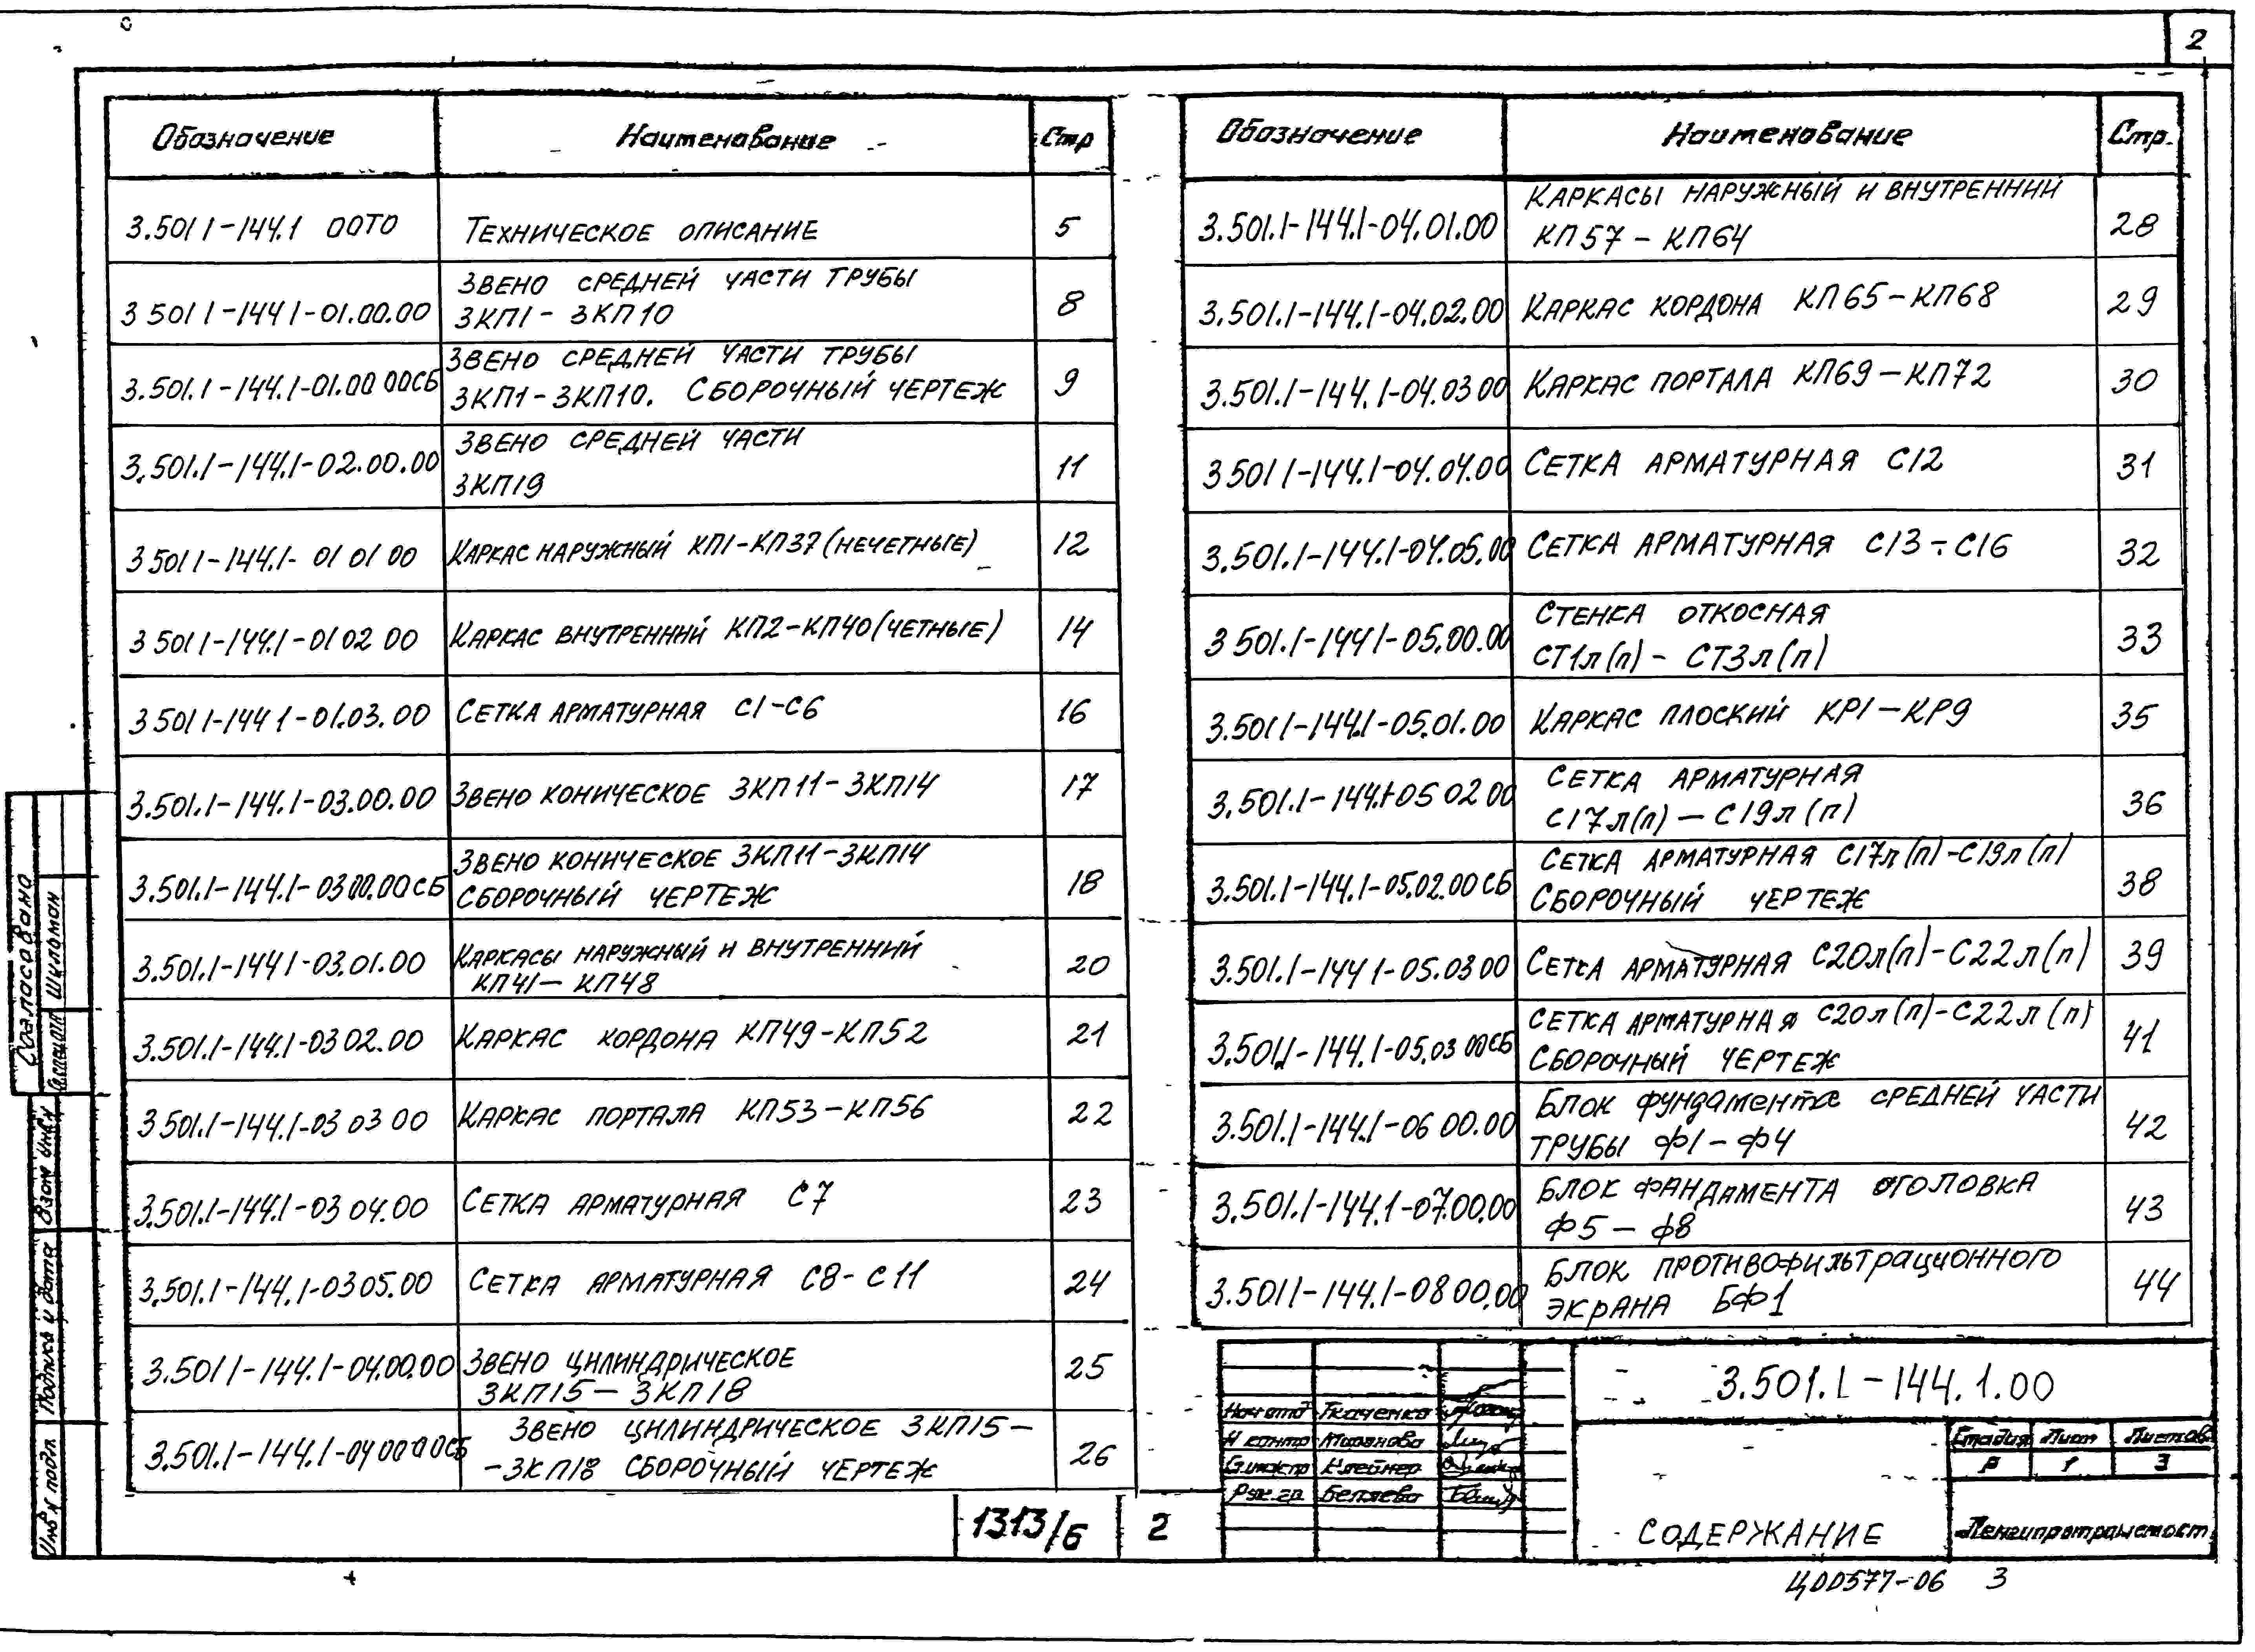 2
Обозначение Наименование Стр
3.501 1-144.1 00ТО Техническое описание 5
3 501 1-144 1-01.00.00 Звено средней части трубы
ЗКП1- ЗКП10 8
3.501.1-144.1-01.00 00СБ Звено средней части трубы
ЗКП1-ЗКП10. Сборочный чертеж 9
3.501.1-144.1-02.00.00 Звено средней части
ЗКП19 11
3 501 1-144.1- 01 01 00 Каркас наружный КП1-КП37(нечетные) 12
3 501 1-144.1-01 02 00 Каркас внутренний КП2-КП40(четные) 14
3 501 1-144 1-01.03.00 Сетка арматурная С1-С6 16
3.501.1-144.1-03.00.00 Звено коническое ЗКП11-ЗКП14 17
3.501.1-144.1-03 00.00 СБ Звено коническое ЗКП11-ЗКП14
Сборочный чертеж 18
3.501.1-144 1-03.01.00 Каркасы наружный и внутренний
КП41- КП48 20
3.501.1-144.1-03 02.00 Каркас кордона КП49-КП52 21
3 501.1-144.1-03 03 00 Каркас портала КП53-КП56 22
3.501.1-144.1-03 04.00 Сетка арматурная С7 23
3.501.1-144.1-03 05.00 Сетка арматурная С8-С11 24
3.501 1-144.1-04.00.00 Звено цилиндрическое
ЗКП15- ЗКП18 25
3.501.1-144.1-04 00 00СБ Звено цилиндрическое ЗКП15-
-ЗКП18 сборочный чертеж 26
Обозначение Наименование Стр.
3.501.1-144.1-04.01.00 Каркасы наружный и внутренний
КП57-КП64 28
3.501.1-144.1-04.02.00 Каркас кордона КП65-КП68 29
3.501.1-144.1-04.03 00 Каркас портала КП69-КП72 30
3 501 1-144.1-04.04.00 Сетка арматурная С12 31
3.501.1-144.1-04.05.00 Сетка арматурная С13÷С16 32
3 501.1-144 1-05.00.00 Стенка откосная
СТ1л(п)- СТ3л(п) 33
3.501 1-144.1-05.01.00 Каркас плоский КР1-КР9 35
3.501.1-144.1-05 02 00 Сетка арматурная
С17л(п)-С19л(п) 36
3.501.1-144.1-05.02.00 СБ Сетка арматурная С17л(п)-С19л(п)
Сборочный чертеж 38
3.501.1-144 1-05.03 00 Сетка арматурная С20л(п)-С22л(п) 39
3.501.1-144.1-05.03 00СБ Сетка арматурная С20л(п)-С22л(п)
Сборочный чертеж 41
3.501.1-144.1-06 00.00 Блок фундамента средней части
трубы Ф1-Ф4 42
3.501.1-144.1-07.00.00 Блок фандамента оголовка
Ф5-ф8 43
3.501 1-144.1-08 00.00 Блок противофильтрационного
экрана БФ1 44
Согласовано
Шильман
Взам инв N
Подпись и дата
Инв N подл
1313/6 2
3.501.1-144.1.00
Нач отд Ткаченко
Н контр Миронова
Гл.инж.пр Клейнер
Рук.гр Беляева
Стадия Лист Листов
Р 1 3
СОДЕРЖАНИЕ
Ленгипротрансмост
Ц00577-06 3